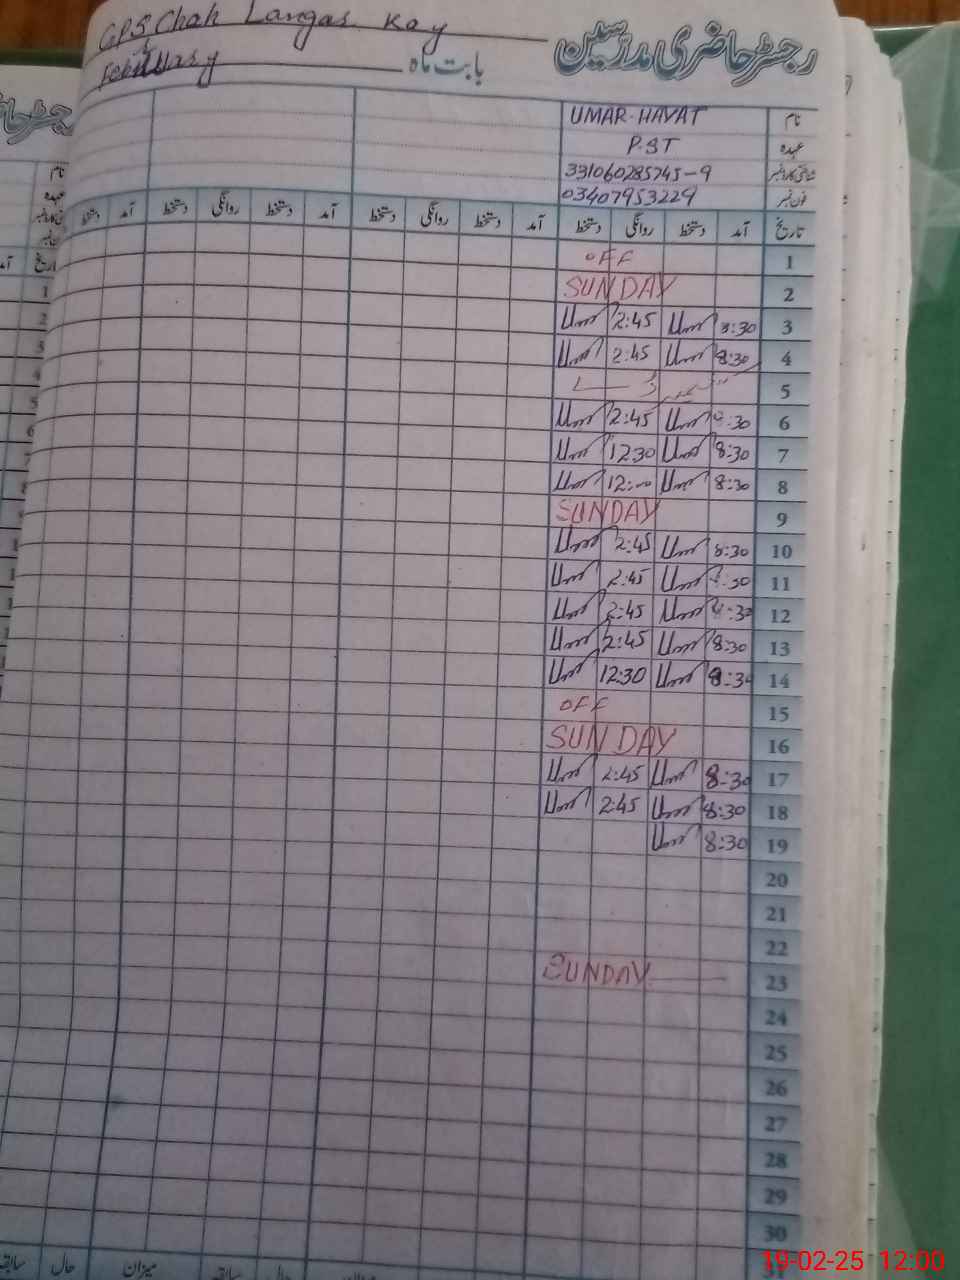 GPS Chak Langas Kay
رجسٹر حاضری مدرسین
February بابت ماہ
نام UMAR-HAYAT
عہدہ P.ST
شناختی کارڈ نمبر 331060285745-9
فون نمبر 03407953229
تاریخ آمد دستخط روانگی دستخط آمد دستخط روانگی دستخط آمد دستخط روانگی دستخط آمد دستخط
1 OFF
2 SUNDAY
3 8:30 2:45
4 8:30 2:45
5
6 8:30 2:45
7 8:30 12:30
8 8:30 12:00
9 SUNDAY
10 8:30 2:45
11 8:30 2:45
12 8:30 2:45
13 8:30 2:45
14 8:30 12:30
15 OFF
16 SUNDAY
17 8:30 2:45
18 8:30 2:45
19 8:30
20
21
22
23 SUNDAY
24
25
26
27
28
29
30
میزان حال سابقہ
19-02-25 12:00